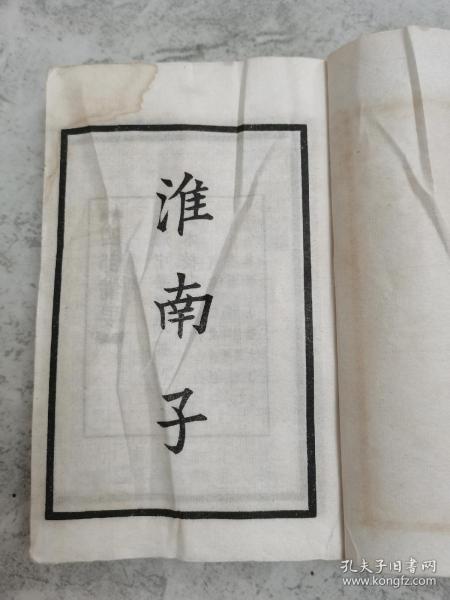 淮南子
孔夫子旧书网
www.kongfz.com